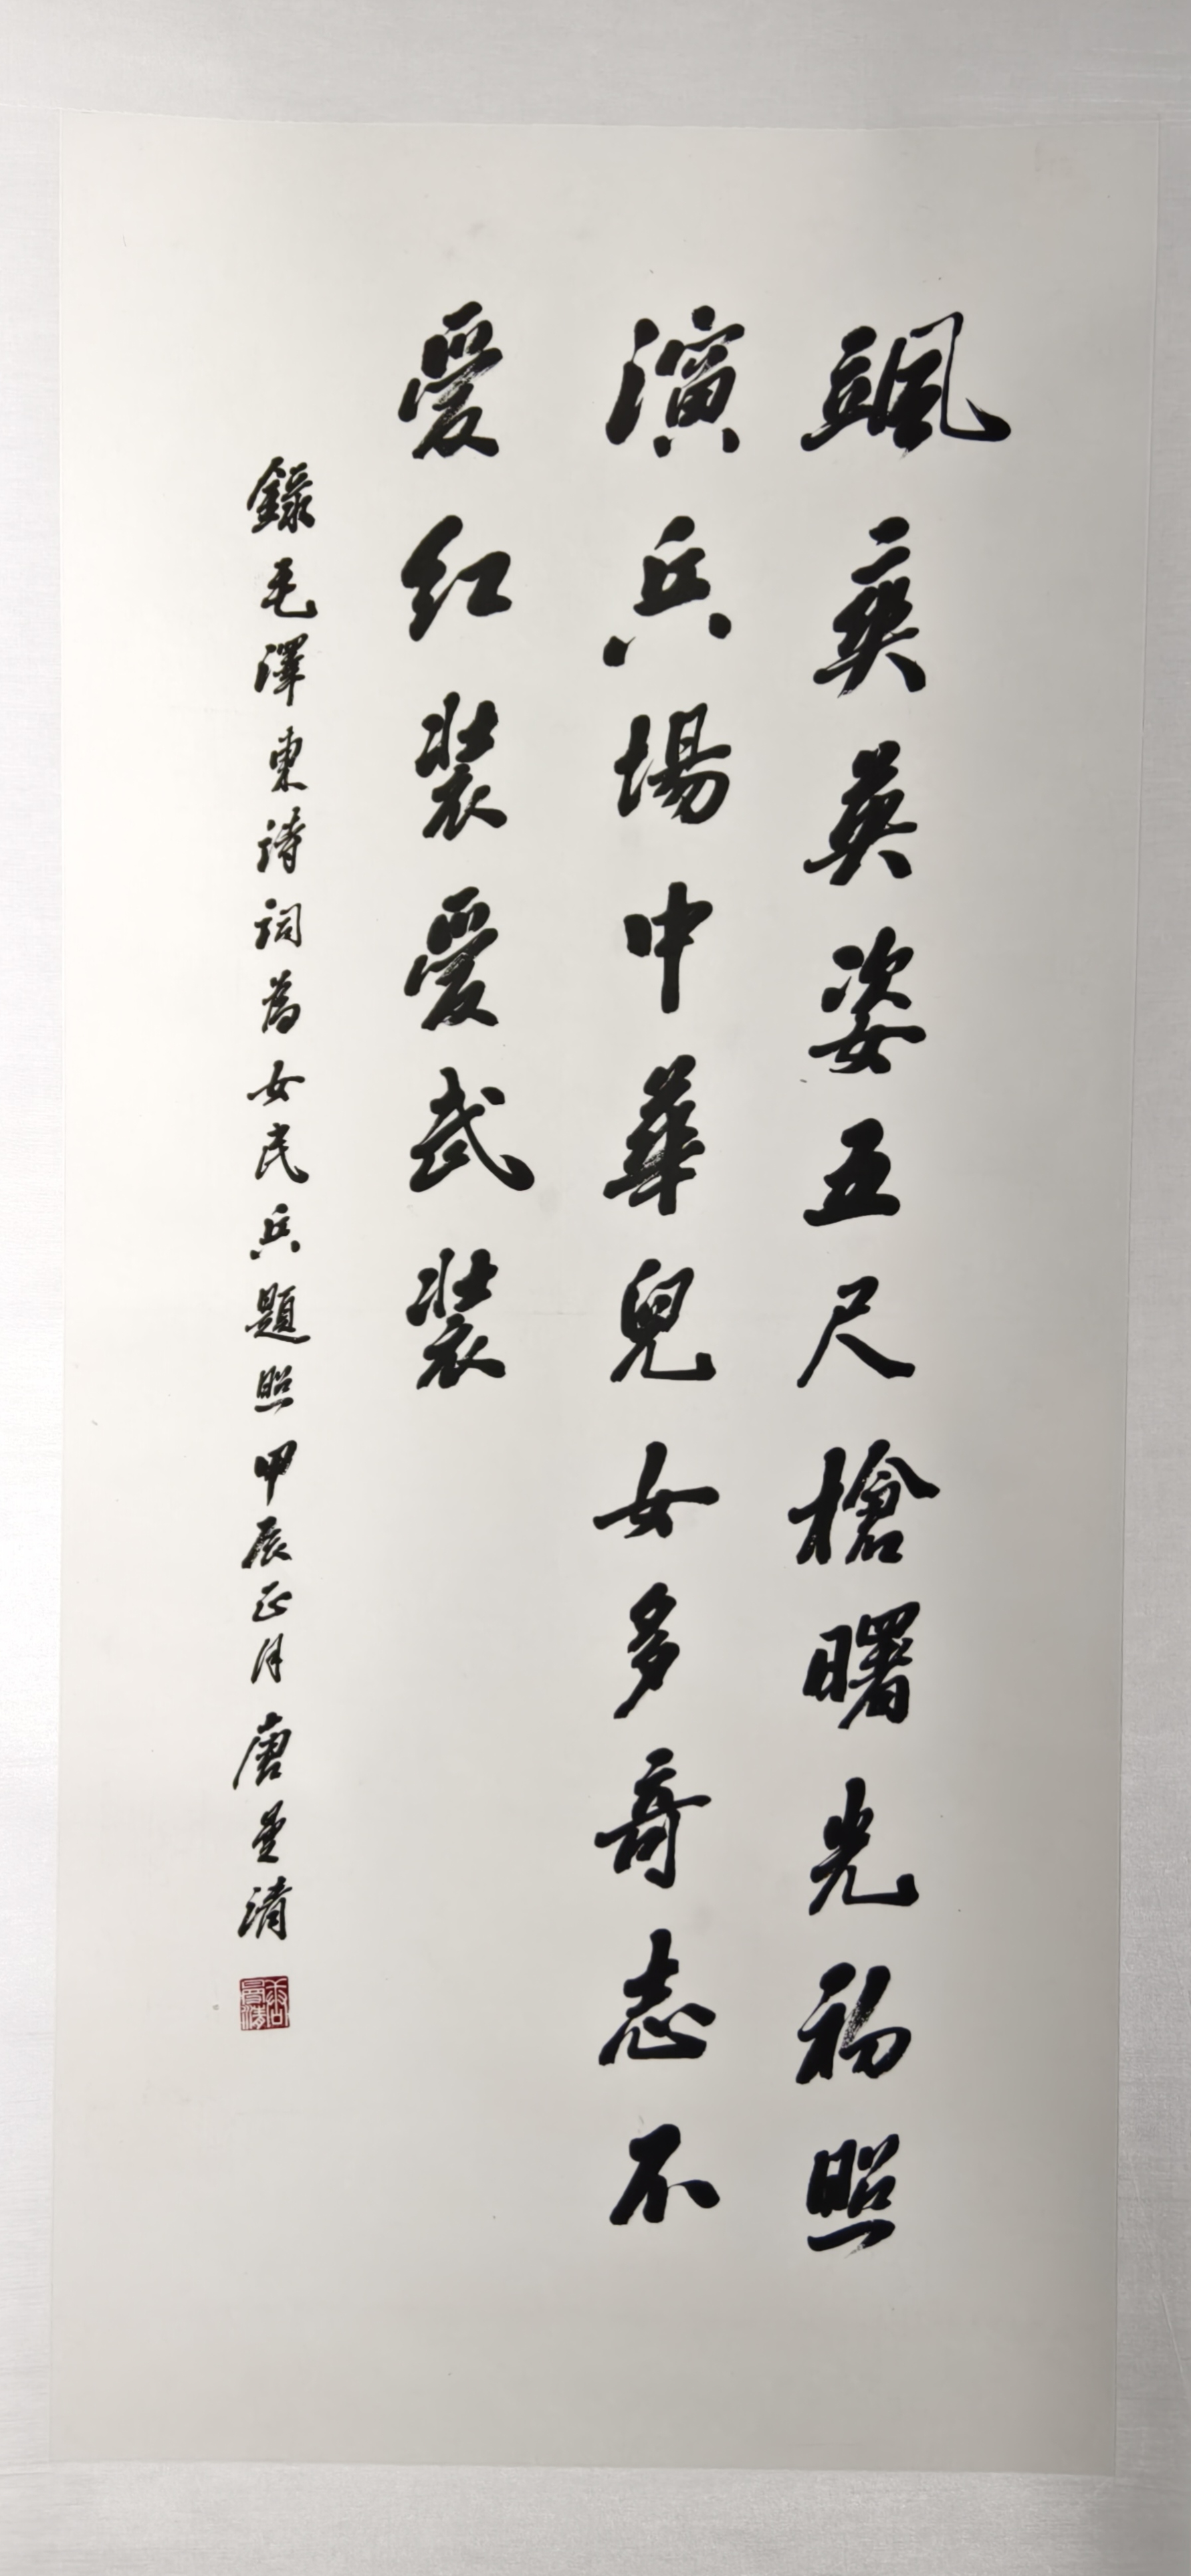 颯爽英姿五尺槍曙光初照
演兵場中華兒女多奇志不
爱红装爱武装
錄毛澤東詩詞為女民兵題照甲辰正月唐曼清